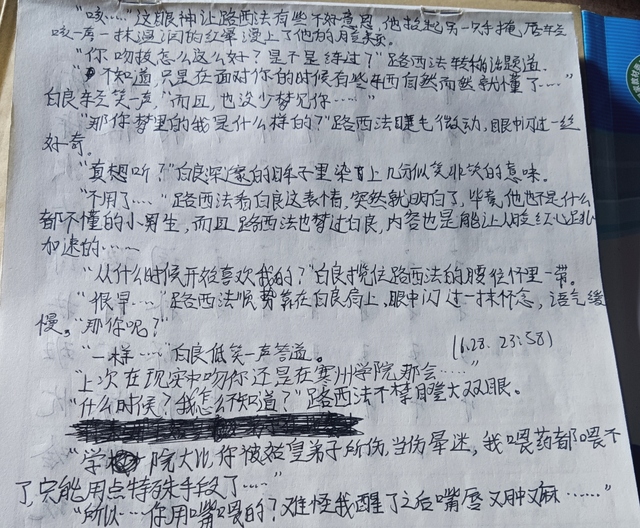 "咳……"这眼神让路西法有些不好意思,他抬起另一只手掩唇轻
咳一声一抹温润的红晕漫上了他的脸颊
"你吻技怎么这么好?是不是练过?"路西法转移话题道.
"不知道,只是在面对你的时候有些东西自然而然就懂了……"
白良轻笑一声,"而且,也没少梦见你……"
"那你梦里的我是什么样的?"路西法睫毛微动,眼中闪过一丝
好奇。
"真想听?"白良深邃的眸子里染上几分似笑非笑的意味。
"不用了……"路西法看白良这表情,突然就明白了,毕竟,他也不是什么
都不懂的小男生,而且路西法也梦过白良,内容也是能让人脸红心跳
加速的……
"从什么时候开始喜欢我的?"白良揽住路西法的腰往怀里一带。
"很早……"路西法顺势靠在白良肩上,眼中闪过一抹怀念,语气缓
慢。"那你呢?"
"一样……"白良低笑一声答道。
(6.28. 23:58)
"上次在现实中吻你还是在寒州学院那会……"
"什么时候?我怎么不知道?"路西法不禁瞪大双眼。
"学院大比,你被皇弟子所伤,当伤晕迷,我喂药都喂不
了,只能用点特殊手段了……"
"所以…你用嘴喂的?难怪我醒了之后嘴唇又肿又麻……"